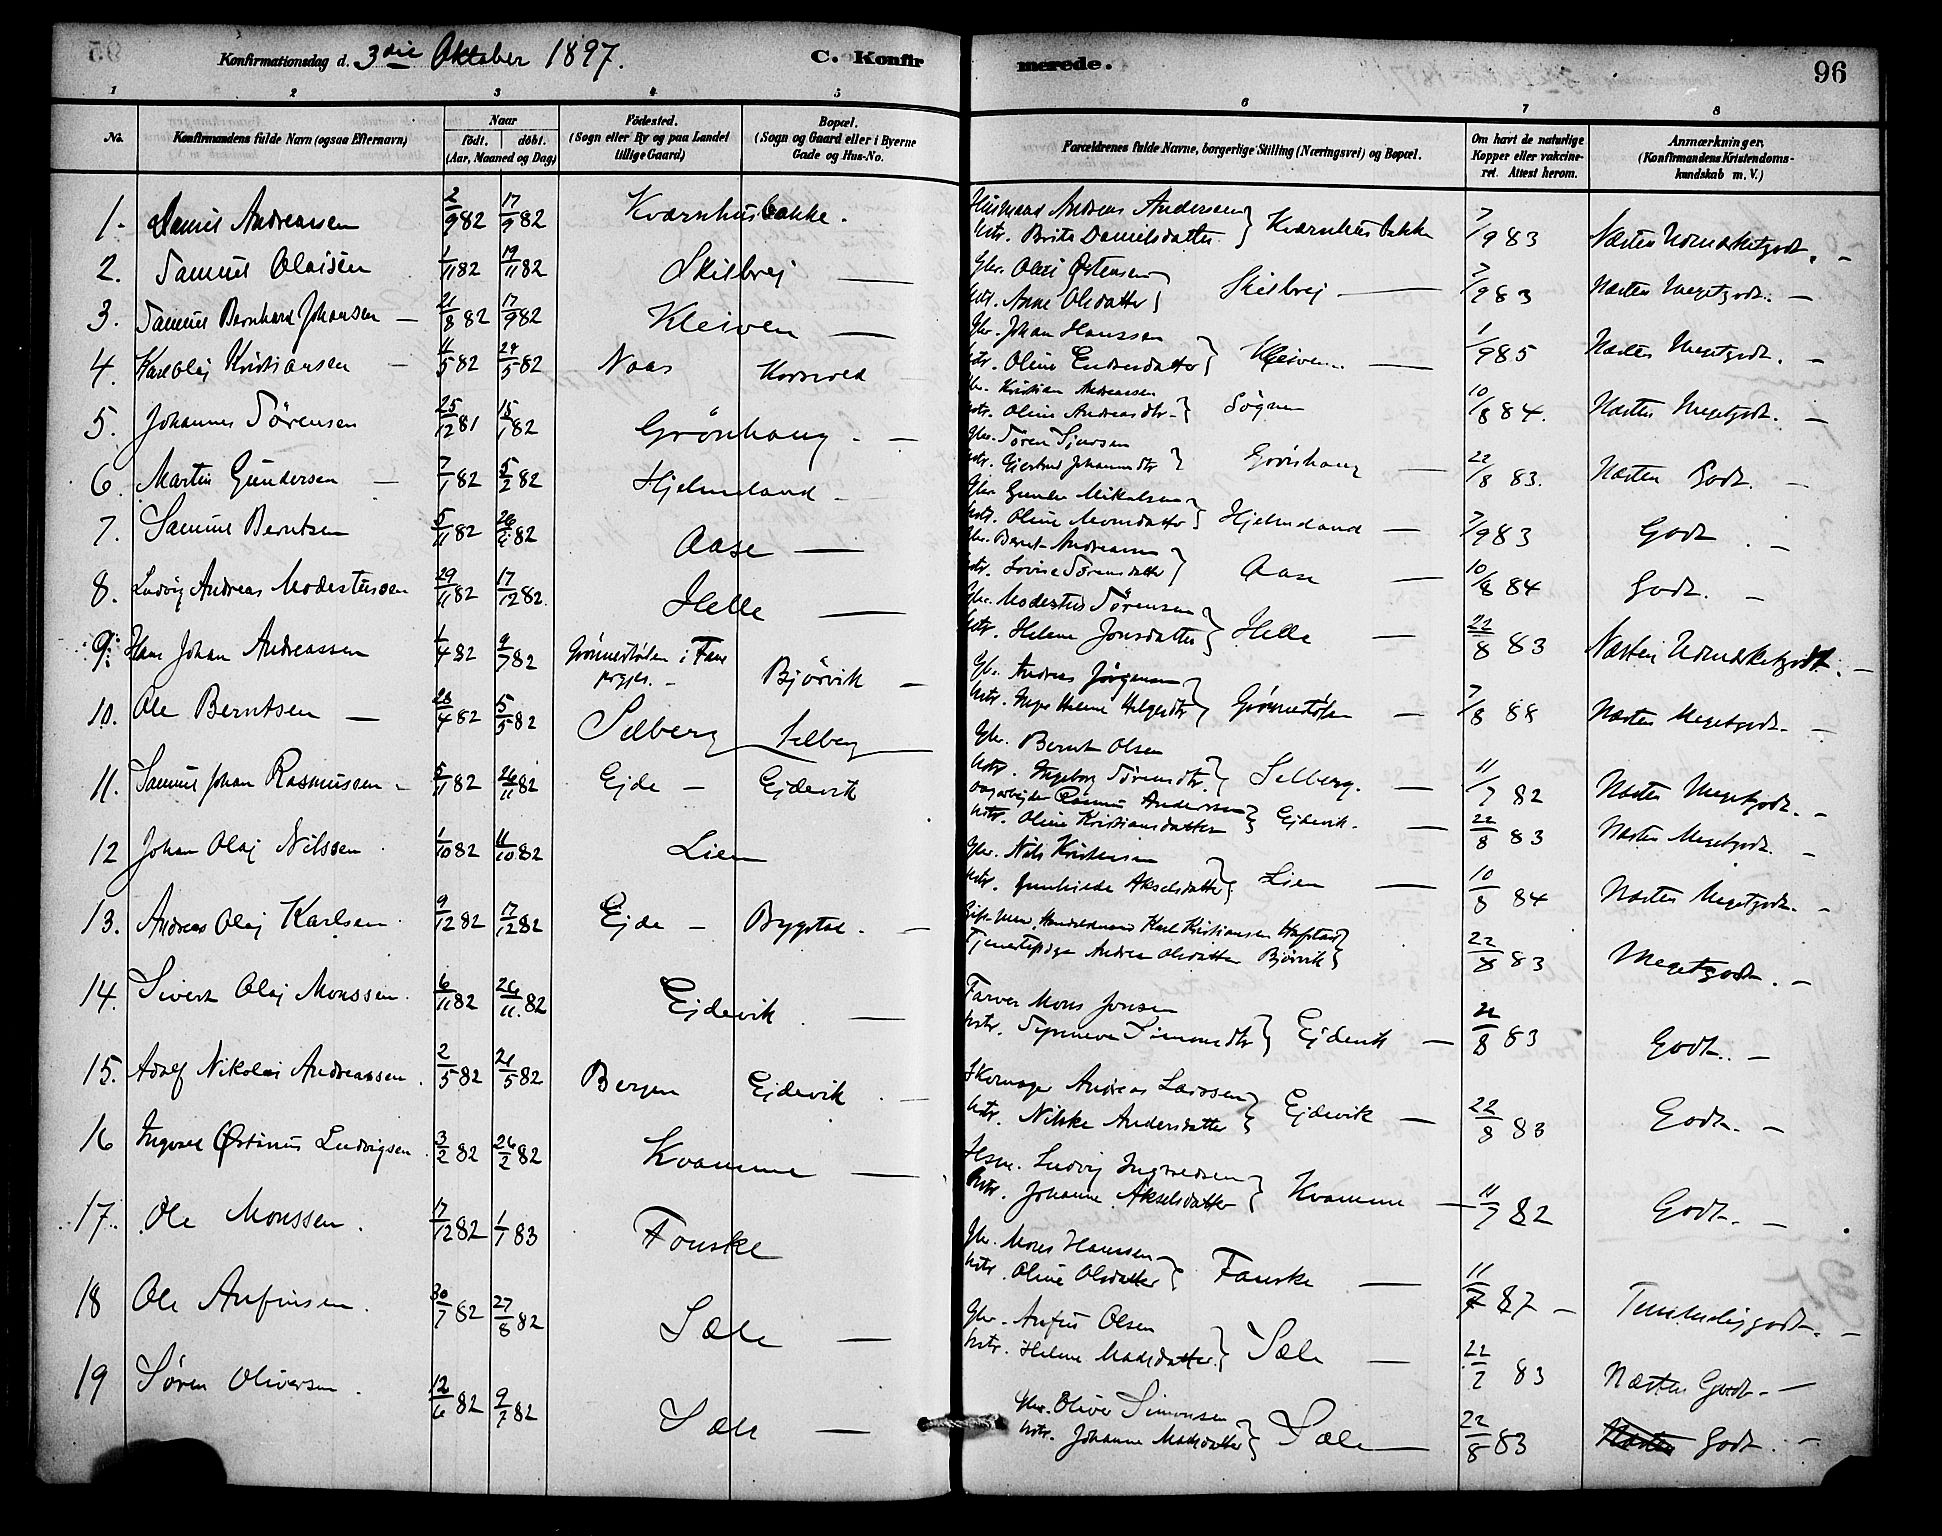 Konfirmationsdag d. 3die Oktober 1897. C. Konfirmerede. 96
1 2 3 4 5 6 7 8
No. Konfirmandens fulde Navn (ogsaa Efternavn) Naar født. døbt. (Aar, Maaned og Dag) Fødested. (Sogn eller By og paa Landet tillige Gaard) Bopæl. (Sogn og Gaard eller i Byerne Gade og Hus-No. Forældrenes fulde Navne, borgerlige Stilling (Næringsvei) og Bopæl. Om havt de naturlige Kopper eller vakcineret. Attest herom. Anmærkninger. (Konfirmandens Kristendomskundskab m. V.)
1. Daniel Andreassen 2/9 82 17/9 82 Kværnhusbakke. Husmand Andreas Andersen Hstr. Brite Danielsdatter } Kværnhusbakke 7/9 83 Næsten Udmærketgodt. -
2. Samuel Olaisen 1/11 82 19/11 82 Skilbrej — Gbr. Olai Østensen Hstr. Anne Olsdatter } Skilbrej — 7/9 83 Næsten Megetgodt. -
3. Samuel Bernhard Johansen - 21/8 82 17/9 82 Kleiven — Gbr. Johan Hanssen Hstr. Oline Endresdatter } Kleiven — 1/9 85 Næsten Megetgodt. -
4. Karl Olaj Kristiansen - 11/5 82 29/5 82 Naas Gbr. Kristian Andreassen Hstr. Oline Andreasdtr. } Sogne 10/8 84. Næsten Megetgodt. -
5. Johannes Sørensen 25/12 81 15/1 82 Grønhaug. — Gbr. Søren Sjursen Hstr. Gjertrud Johannesdtr } Grønhaug — 22/8 83. Næsten Godt. -
6. Martin Gundersen - 7/1 82 5/2 82 Hjelmeland - Gbr. Gunder Mikalsen Hstr. Oline Monsdatter } Hjelmeland — 7/9 83 Godt. -
7. Samuel Berntsen 5/11 82 26/11 82 Aase — Gbr. Bernt Andreassen Hstr. Lovise Sørensdatter } Aase — 10/8 84 Godt. -
8. Ludvig Andreas Modestussen 29/11 82 17/12 82. Helle — Gbr. Modestus Sørensen Hstr. Helene Jonsdatter } Helle — 22/8 83 Næsten Udmærketgodt. -
9. Hans Johan Andreassen 1/4 82 9/7 82 Grønnestølen i Fane prgjld. - Bjørvik — Gbr. Andreas Jørgensen Hstr. Inger Helene Helgesdtr } Grønnestølen — 7/8 88 Næsten Megetgodt. -
10. Ole Berntsen — 23/4 82 5/5 82 Selberg Selberg — Gbr. Bernt Olsen Hstr. Ingeborg Sørensdtr. } Selberg. — 11/7 82 Næsten Megetgodt. -
11. Samuel Johan Rasmussen - 5/11 82 26/11 82 Ejde - Ejdevik Rasmus Anderssen Hstr. Oline Kristiansdatter } Ejdevik. — 22/8 83 Næsten Megetgodt. -
12 Johan Olaj Nilssen 1/10 82 11/10 82 Lien Gbr. Nils Kristensen Hstr. Gunhilde Akselsdatter } Lien — 10/8 84 Næsten Megetgodt. -
13. Andreas Olaj Karlsen. 9/12 82 17/12 82 Ejde - Bygstad. - Handelsmand Karl Kristiansen Hafstad Tjenestepige Andrea Olsdatter Bjørvik } 22/8 83 Megetgodt. -
14. Sivert Olaj Monssen. 6/11 82 26/11 82 Ejdevik. — Farver Mons Jonsen Hstr. Synneva Simonsdtr } Ejdevik — 22/8 83 Godt. -
15. Adolf Nikolai Andreassen. 2/5 82 21/5 82 Bergen Ejdevik. - Skomager Andreas Larssen Hstr. Nilske Andersdatter } Ejdevik — 22/8 83 Godt. -
16 Ingvald Østinus Ludvigsen. 3/2 82 26/2 82 Kvamme — Hsm. Ludvig Ingvaldsen Hstr. Johanne Akselsdatter } Kvamme — 11/7 82 Godt. -
17. Ole Monssen. 17/12 82 1/1 83 Fonske Gbr. Mons Hanssen Hstr. Oline Olsdatter } Fanske — 11/7 87 - Temmeliggodt. -
18 Ole Anfinsen. 30/7 82 27/8 82 Sæle — Gbr. Anfin Olsen Hstr. Helene Madsdatter. } Sæle — 22/7 83 Næsten Godt. -
19 Søren Oliversen. 12/6 82 9/7 82 Sæle — Gbr. Oliver Simonsen Hstr. Johanne Madsdatter } Sæle — 22/8 83 Næsten Godt. -